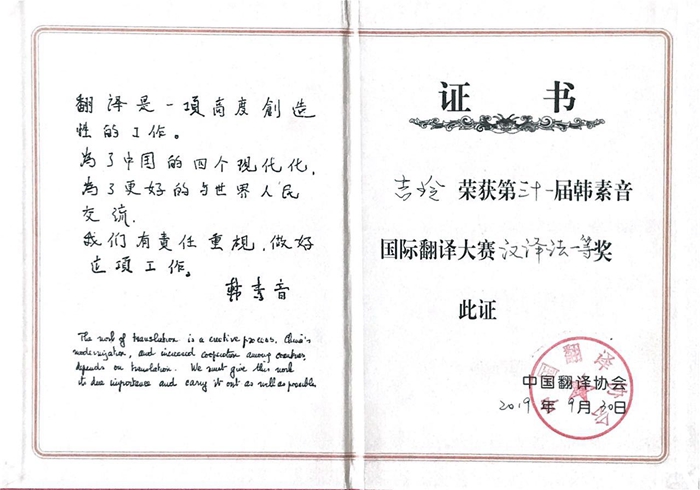 翻譯是一項高度創造
性的工作。
為了中国的四个现代化,
為了更好的与世界人民
交流.
我们有責任重視,做好
这項工作。
韩素音
The work of translation is a creative process. China's
modernization, and increased cooperation among countries
depends on translation. We must give this work
its due importance and carry it out as well as possible
证 书
吉玲 荣获第三十一届韩素音
国际翻译大赛汉译法一等奖
此证
中国翻译协会
2019年9月30日
中国翻译协会